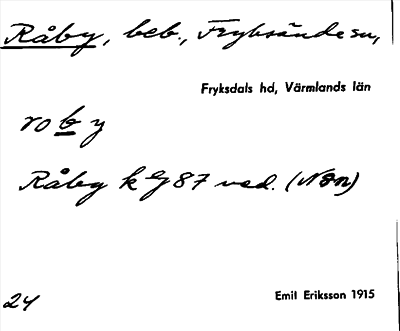 Råby, beb., Fryksände sn,
Fryksdals hd, Värmlands län
roby
Råby k eg 87 ved. (Nsn)
24
Emil Eriksson 1915